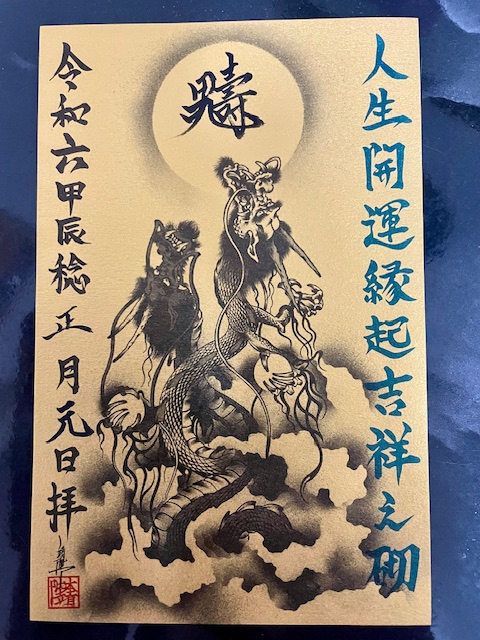 人生開運縁起吉祥之砌
令和六甲辰稔正月元日拝